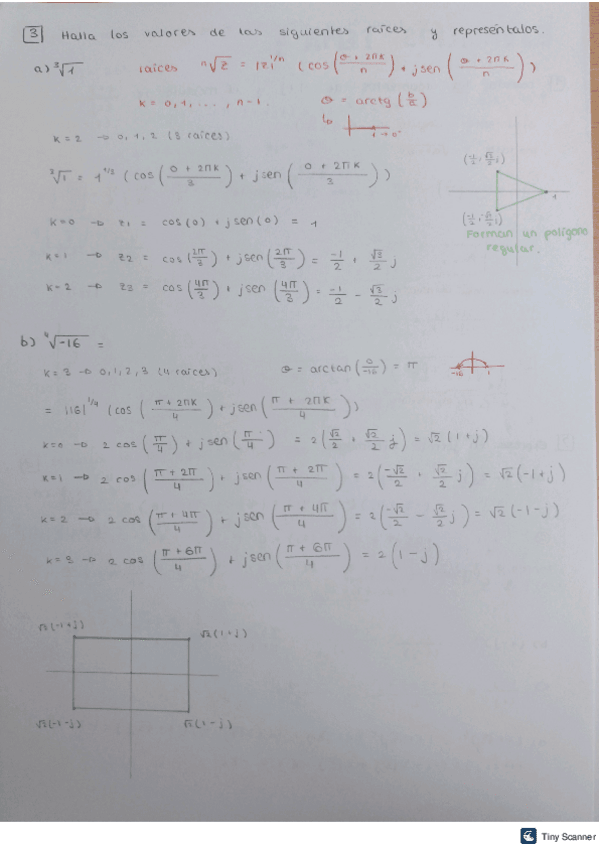 3 Halla los valores de las siguientes raíces y represéntalos.
a) ³√1 raíces ⁿ√z = |z|^1/n (cos(θ + 2πk / n) + j sen(θ + 2πk / n))
k = 0, 1, ..., n-1. θ = arctg(b/a)
k = 2 → 0, 1, 2 (3 raíces)
³√1 = 1^1/3 (cos(0 + 2πk / 3) + j sen(0 + 2πk / 3))
(-1/2, √3/2 j)
1
(-1/2, √3/2 j)
Forman un polígono
regular.
k=0 → z1 = cos(0) + j sen(0) = 1
k=1 → z2 = cos(2π/3) + j sen(2π/3) = -1/2 + √3/2 j
k=2 → z3 = cos(4π/3) + j sen(4π/3) = -1/2 - √3/2 j
b) ⁴√-16 =
k = 3 → 0, 1, 2, 3 (4 raíces) θ = arctan(0/-16) = π
-16
= |16|^1/4 (cos(π + 2πk / 4) + j sen(π + 2πk / 4))
k=0 → 2 cos(π/4) + j sen(π/4) = 2(√2/2 + √2/2 j) = √2(1+j)
k=1 → 2 cos(π + 2π / 4) + j sen(π + 2π / 4) = 2(-√2/2 + √2/2 j) = √2(-1+j)
k=2 → 2 cos(π + 4π / 4) + j sen(π + 4π / 4) = 2(-√2/2 - √2/2 j) = √2(-1-j)
k=3 → 2 cos(π + 6π / 4) + j sen(π + 6π / 4) = 2(1-j)
√2(-1+j) √2(1+j)
√2(-1-j) √2(1-j)
Tiny Scanner